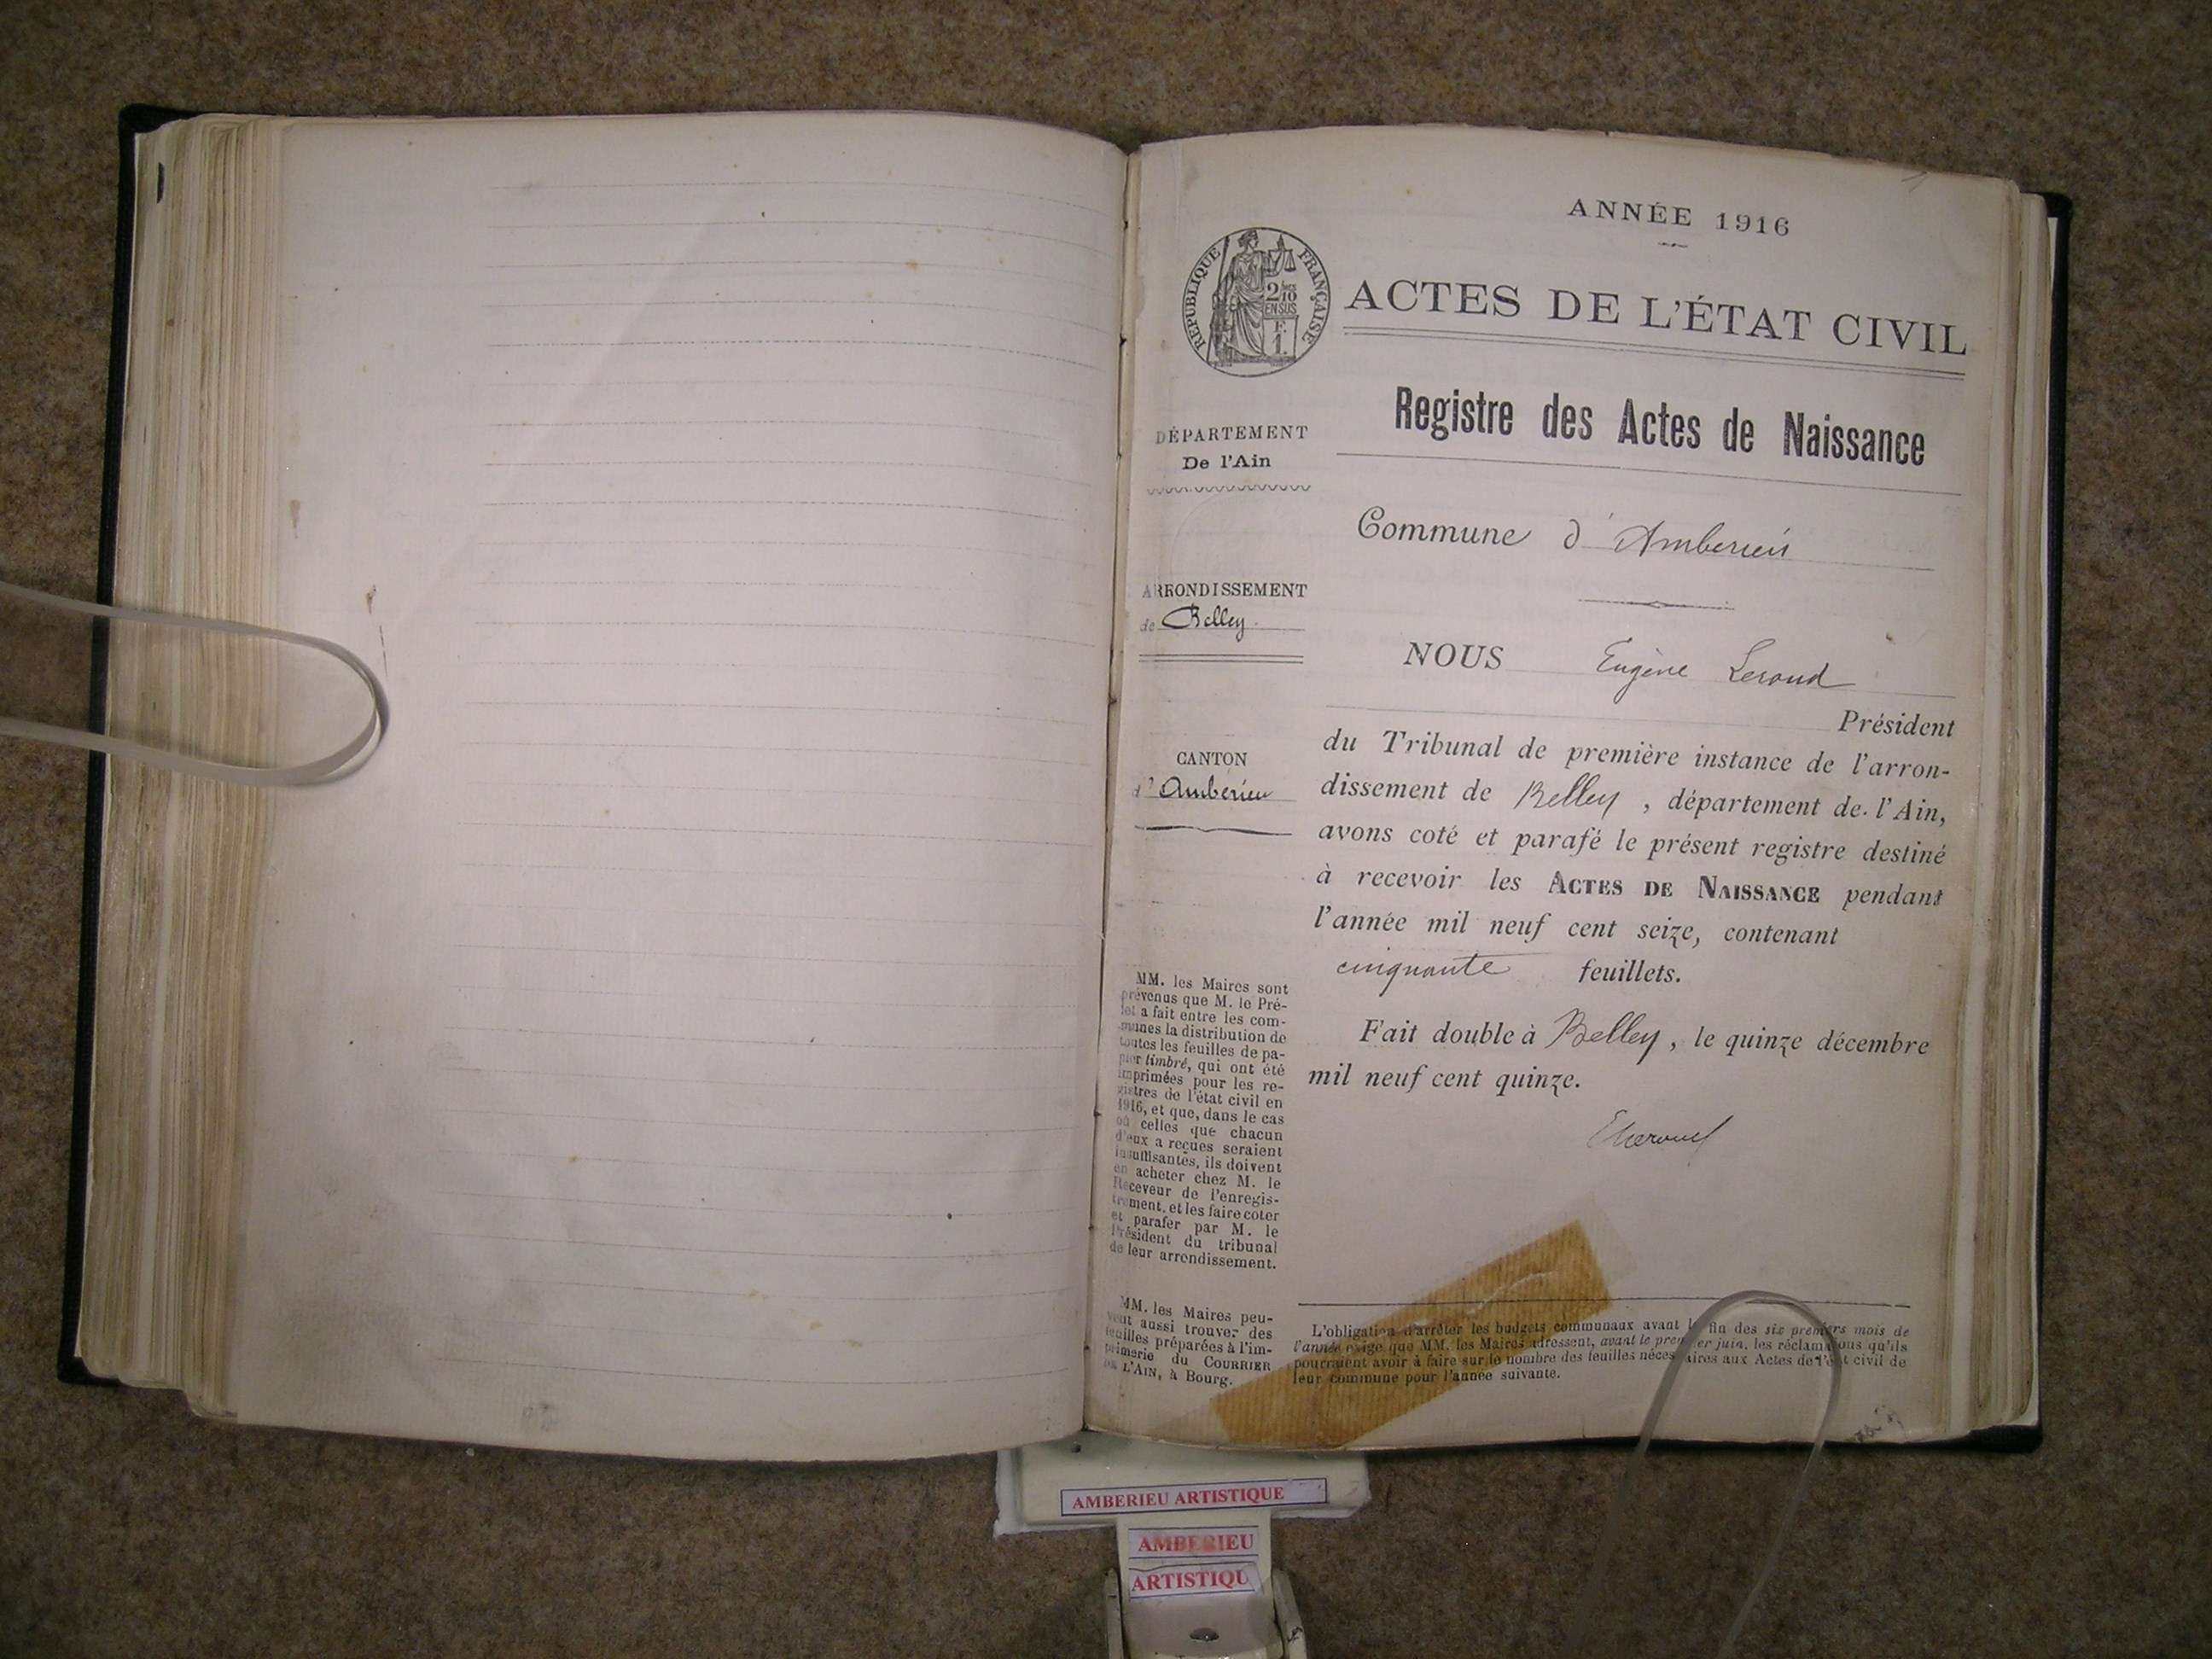 ANNÉE 1916
RÉPUBLIQUE FRANÇAISE
2/10
EN SUS
F.
1.
ACTES DE L'ÉTAT CIVIL
Registre des Actes de Naissance
DÉPARTEMENT
De l'Ain
ARRONDISSEMENT
de Belley
CANTON
d'Ambérieu
MM. les Maires sont
prévenus que M. le Pré-
fet a fait entre les com-
munes la distribution de
toutes les feuilles de pa-
pier timbré, qui ont été
imprimées pour les re-
gistres de l'état civil en
1916, et que, dans le cas
où celles que chacun
d'eux a reçues seraient
insuffisantes, ils doivent
en acheter chez M. le
Receveur de l'enregis-
trement, et les faire coter
et parafer par M. le
Président du tribunal
de leur arrondissement.
MM. les Maires peu-
vent aussi trouver des
feuilles préparées à l'im-
primerie du COURRIER
DE L'AIN, à Bourg.
Commune d'Amberieu
NOUS Eugène
Président
du Tribunal de première instance de l'arron-
dissement de Belley, département de l'Ain,
avons coté et parafé le présent registre destiné
à recevoir les ACTES DE NAISSANCE pendant
l'année mil neuf cent seize, contenant
cinquante feuillets.
Fait double à Belley, le quinze décembre
mil neuf cent quinze.
L'obligation d'arrêter les budgets communaux avant la fin des six premiers mois de
l'année exige que MM. les Maires adressent, avant le premier juin, les réclamations qu'ils
pourraient avoir à faire sur le nombre des feuilles nécessaires aux Actes de l'état civil de
leur commune pour l'année suivante.
AMBERIEU ARTISTIQUE
AMBERIEU
ARTISTIQU